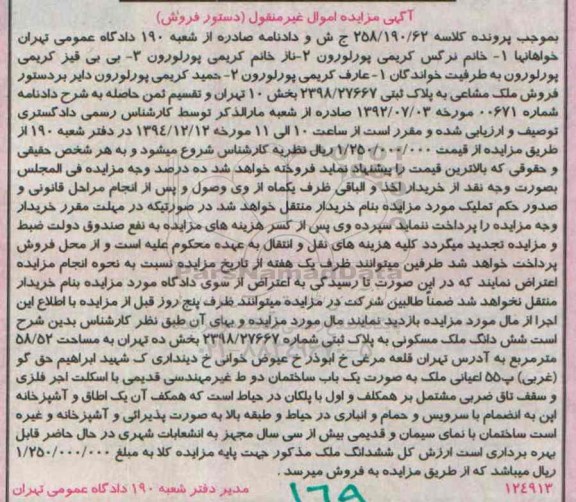 آگهی مزایده اموال غیرمنقول (دستور فروش)
بموجب پرونده کلاسه ۲۵۸/۱۹۰/۶۲ ج ش و دادنامه صادره از شعبه ۱۹۰ دادگاه عمومی تهران
خواهانها ۱- خانم نرگس کریمی پورلورون ۲-ناز خانم کریمی پورلورون ۳- بی بی قیز کریمی
پورلورون به طرفیت خواندگان ۱-عارف کریمی پورلورون ۲- حمید کریمی پورلورون دایر بردستور
فروش ملک مشاعی به پلاک ثبتی ۲۳۹۸/۲۷۶۶۷ بخش ۱۰ تهران و تقسیم ثمن حاصله به شرح دادنامه
شماره ۰۰۶۷۱ مورخه ۱۳۹۲/۰۷/۰۳ صادره از شعبه مارالذکر توسط کارشناس رسمی دادگستری
توصیف و ارزیابی شده و مقرر است از ساعت ۱۰ الی ۱۱ مورخه ۱۳۹۴/۱۲/۱۲ در دفتر شعبه ۱۹۰ از
طریق مزایده از قیمت ۱/۲۵۰/۰۰۰/۰۰۰ ریال نظریه کارشناس شروع میشود و به هر شخص حقیقی
و حقوقی که بالاترین قیمت را پیشنهاد نماید فروخته خواهد شد ده درصد وجه مزایده فی المجلس
بصورت وجه نقد از خریدار اخذ و الباقی ظرف یکماه از وی وصول و پس از انجام مراحل قانونی و
صدور حکم تملیک مورد مزایده بنام خریدار منتقل خواهد شد در صورتیکه در مهلت مقرر خریدار
وجه مزایده را پرداخت ننماید سپرده وی پس از کسر هزینه های مزایده به نفع صندوق دولت ضبط
و مزایده تجدید میگردد کلیه هزینه های نقل و انتقال به عهده محکوم علیه است و از محل فروش
پرداخت خواهد شد طرفین میتوانند ظرف یک هفته از تاریخ مزایده نسبت به نحوه انجام مزایده
اعتراض نمایند که در این صورت تا رسیدگی به اعتراض از سوی دادگاه مورد مزایده بنام خریدار
منتقل نخواهد شد ضمناً طالبین شرکت در مزایده میتوانند ظرف پنج روز قبل از مزایده با اطلاع این
اجرا از مال مورد مزایده بازدید نمایند مال مورد مزایده و بهای آن طبق نظر کارشناس بدین شرح
است شش دانگ ملک مسکونی به پلاک ثبتی شماره ۲۳۹۸/۲۷۶۶۷ بخش ده تهران به مساحت ۵۸/۵۲
مترمربع به آدرس تهران قلعه مرغی خ ابوذر خ عیوض خوانی خ دینداری ک شهید ابراهیم حق گو
(غربی) پ۵۵ اعیانی ملک به صورت یک باب ساختمان دو ط غیرمهندسی قدیمی با اسکلت اجر فلزی
و سقف تاق ضربی مشتمل بر همکف و اول با پلکان در حیاط است که همکف آن یک اطاق و آشپزخانه
این به انضمام با سرویس و حمام و انباری در حیاط و طبقه بالا به صورت پذیرائی و آشپزخانه و غیره
است ساختمان با نمای سیمان و قدیمی بیش از سی سال مجهز به انشعابات شهری در حال حاضر قابل
بهره برداری است ارزش کل ششدانگ ملک مذکور جهت پایه مزایده کلا به مبلغ ۱/۲۵۰/۰۰۰/۰۰۰
ریال میباشد که از طریق مزایده به فروش میرسد.
۱۲۴۹۱۳ مدیر دفتر شعبه ۱۹۰ دادگاه عمومی تهران